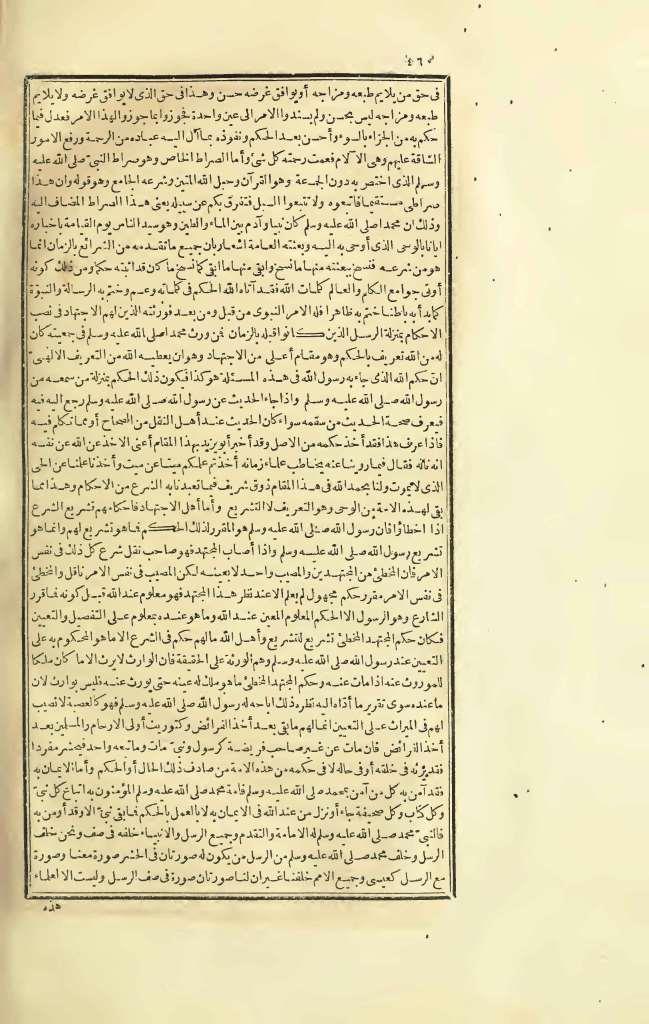 ٤٦٠
فى حق من يلايم طبعه ومزاجه أو يوافق غرضه حسن وهذا فى حق الذى لا يوافق غرضه ولا يلايم
طبعه ومزاجه ليس بحسن ولم يستندوا الامر الى عين واحدة فجوزوا بما جوزوا لهذا الامر فعدل فيما
حكم به من الجزاء بالسوء وأحسن بعد الحكم ونفوذه بما آل اليه عباده من الرحمة ورفع الامور
الشاقة عليهم وهى الآلام فعمت رحمته كل شئ وأما الصراط الخاص وهو صراط النبىّ صلى الله عليه
وسلم الذى اختص به دون الجماعة وهو القرآن وحبل الله المتين وشرعه الجامع وهو قوله وان هذا
صراطى مستقيما فاتبعوه ولا تتبعوا السبل فتفرق بكم عن سبيله يعنى هذا الصراط المضاف اليه
وذلك ان محمدا صلى الله عليه وسلم كان نبيا وآدم بين الماء والطين وهو سيد الناس يوم القيامة باخباره
ايانا بالوحى الذى أوحى به اليه وبعثته العامة اشعار بان جميع ما تقدمه من الشرائع بالزمان انما
هو من شرعه فنسخ ببعثته منها ما نسخ وابقى منها ما ابقى كما نسخ ما كان قد اثبته حكما ومن ذلك كونه
أوتى جوامع الكلم والعالم كلمات الله فقد آتاه الله الحكم فى كلماته وعم وختم به الرسالة والنبوّة
كما بدأ به باطنا ختم به ظاهرا فله الامر النبوى من قبل ومن بعد فورثته الذين لهم الاجتهاد فى نصب
الاحكام بمنزلة الرسل الذين كانوا قبله بالزمان فمن ورث محمدا صلى الله عليه وسلم فى جمعيته كان
له من الله تعريف بالحكم وهو مقام أعلى من الاجتهاد وهو ان يعطيه الله من التعريف الالهىّ
انّ حكم الله الذى جاء به رسول الله فى هذه المسئلة هو كذا فيكون ذلك الحكم بمنزلة من سمعه من
رسول الله صلى الله عليه وسلم واذا جاء الحديث عن رسول الله صلى الله عليه وسلم رجع اليه فيه
فيعرف صحة الحديث من سقمه سواء كان الحديث عند أهل النقل من الصحاح أو مما تكلم فيه
فاذا عرف هذا فقد أخذ حكمه من الاصل وقد أخبر أبو يزيد بهذا المقام أعنى الاخذ عن الله عن نفسه
انه ناله فقال فيما روينا عنه يخاطب علماء زمانه أخذتم علمكم ميتا عن ميت وأخذنا علمنا عن الحى
الذى لا يموت ولنا بحمد الله فى هذا المقام ذوق شريف فيما تعبدنا به الشرع من الاحكام وهذا مما
بقى لهذه الامة من الوحى وهو التعريف لا التشريع وأما أهل الاجتهاد فاحكامهم تشريع الشرع
اذا اخطأوا فان رسول الله صلى الله عليه وسلم هو المقرر لذلك الحكم فما هو تشريع لهم وانما هو
تشريع رسول الله صلى الله عليه وسلم واذا أصاب المجتهد فهو صاحب نقل شرع كل ذلك فى نفس
الامر فان المخطئ من المجتهدين والمصيب واحد لا بعينه لكن المصيب فى نفس الامر ناقل والمخطئ
فى نفس الامر مقرر حكم مجهول لم يعلم الا عند نظر هذا المجتهد فهو معلوم عند الله قبل كونه فما قرر
الشارع وهو الرسول الا الحكم المعلوم المعين عند الله وما هو عنده بمعلوم على التفصيل والتعيين
فكان حكم المجتهد المخطئ تشريع لتشريع وأهل الله ما لهم حكم فى الشرع الا ما هو المحكوم به على
التعيين عند رسول الله صلى الله عليه وسلم وهم الورثة على الحقيقة فان الوارث لا يرث الا ما كان ملكا
للموروث عنه اذا مات عنه وحكم المجتهد المخطئ ما هو ملك له عينه حتى يورث عنه فليس بوارث لان
ما عنده سوى تقرير ما أدّاه اليه نظره ذلك اباحه له رسول الله صلى الله عليه وسلم فهو كالعصبة لا نصيب
لهم فى الميراث على التعيين انما لهم ما بقى بعد أخذ الفرائض وكتوريث أولى الارحام والمسلمين بعد
أخذ الفرائض فان مات عن غير صاحب فريضة كرسول ونبىّ مات وما تبعه واحد فيحشر مفردا
فقد يرثه فى خلقه أو فى حاله لا فى حكمه من هذه الامة من صادف ذلك الحال أو الحكم وأما الايمان به
فقد آمن به كل من آمن بمحمد صلى الله عليه وسلم فامة محمد صلى الله عليه وسلم المؤمنون به اتباع كل نبىّ
وكل كتاب وكل صحيفة جاء أو نزل من عند الله فى الايمان به لا بالعمل بالحكم فما بقى نبىّ الا وقد أومن به
فالنبىّ محمد صلى الله عليه وسلم له الامامة والتقدم وجميع الرسل والانبياء خلفه فى صف ونحن خلف
الرسل وخلف محمد صلى الله عليه وسلم من الرسل من يكون له صورتان فى الحشر صورة معنا وصورة
مع الرسل كعيسى وجميع الامم خلفنا غير ان لنا صورتان صورة فى صف الرسل وليست الا لعلماء
هذه